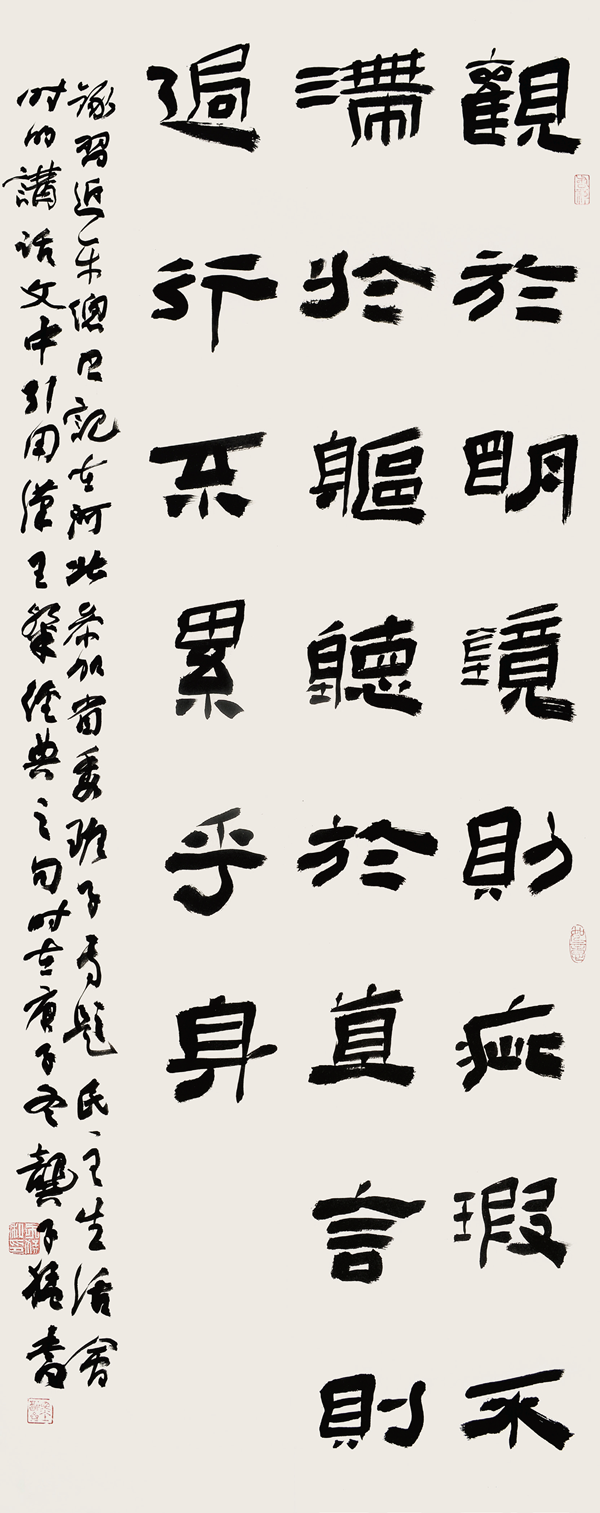 觀於明鏡則疵瑕不
滯於軀聽於直言則
過行不累乎身
錄習近平總书記在河北参加省委班子专題民主生活會
时的講话文中引用漢王粲經典之句时在庚子冬龔子猛書